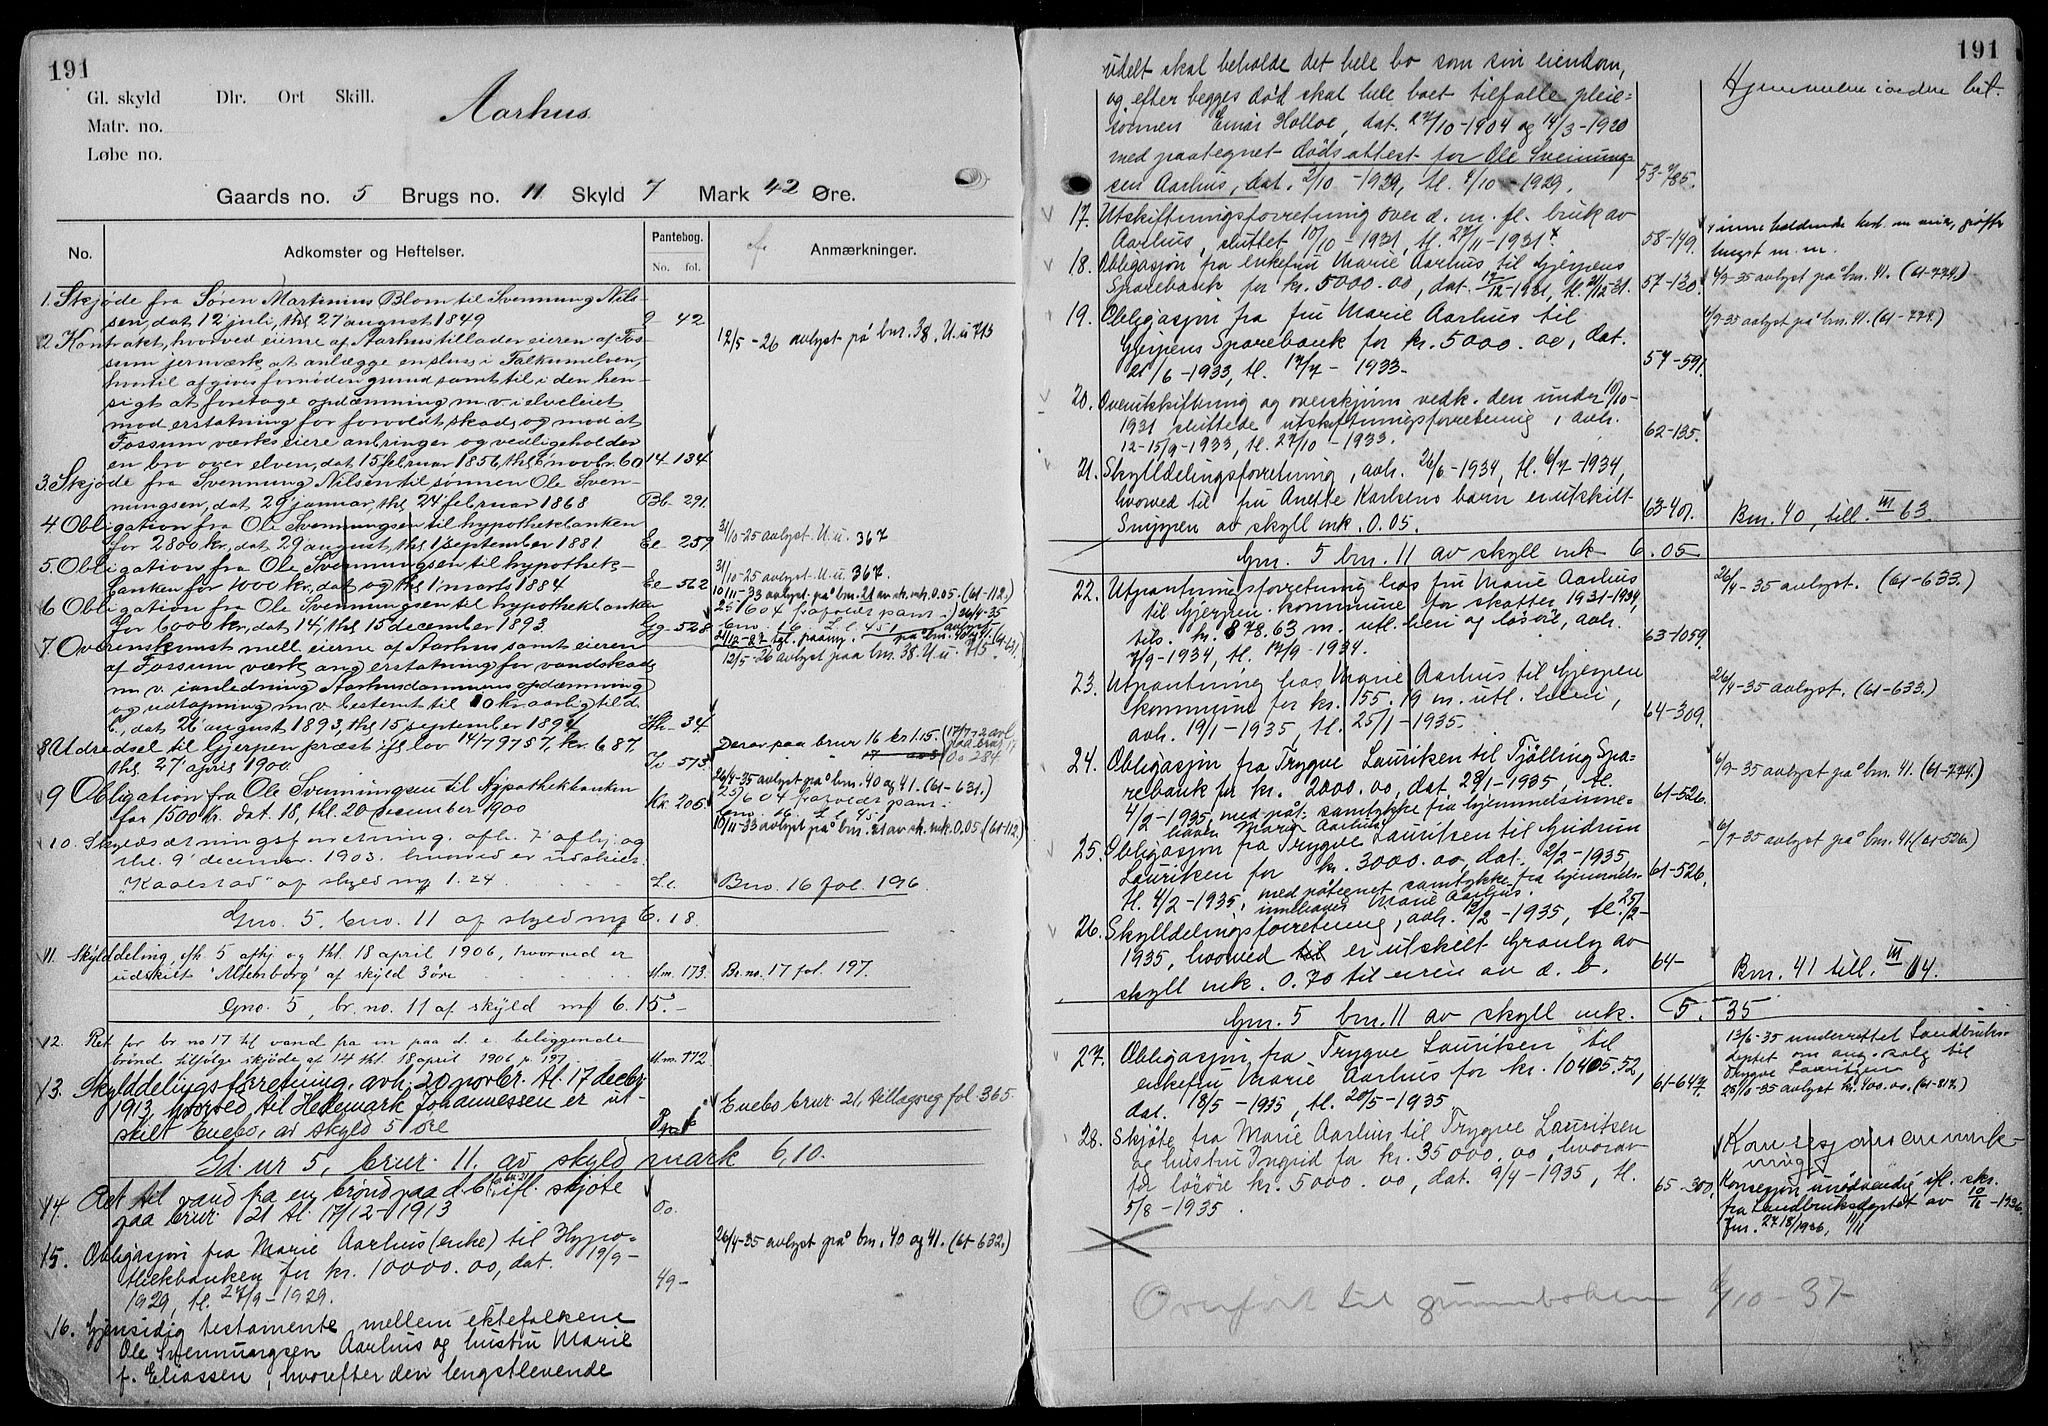 191
Gl. skyld Dlr. Ort Skill.
Matr. no.
Løbe no.
Aarhus
Gaards no. 5 Brugs no. 11 Skyld 7 Mark 42 Øre.
No. Adkomster og Heftelser. Pantebog. No. fol. Anmærkninger.
1. Skjøde fra Søren Martinius Blom til Svennung Nil-
sen, dat 12 juli, thl 27 august 1849 9 42
2. Kontrakt, hvorved eierne af Aarhus tillader eieren af Fos- 12/5-26 avlyst på bnr. 38. U.u 715
sum jernværk at anlægge en sluse i Falkumelven,
hvortil afgives fornøden grund samt til i den hen-
sigt at foretage opdæmning m v i elveleiet
mod erstatning for forvoldt skade og mod at
Fossum værks eiere anbringer og vedligeholder
en bro over elven, dat 15 februar 1856, thl novbr. 60 14-134
3. Skjøde fra Svennung Nilsen til sønnen Ole Sven-
nungsen, dat 29 januar, thl 24 februar 1868 Bb 291.
4 Obligation fra Ole Svennungsen til hypothekbanken
for 2800 kr, dat 29 august, thl 1 september 1881. Ee 259 31/10-25 avlyst. U.u. 367
5. Obligation fra Ole Svennungsen til hypothek-
banken for 1000 kr, dat og thl 1 marts 1884 Ee-562 31/10-25 avlyst. U.u. 367.
6 Obligation fra Ole Svennungsen til hypothekbanken 10/11-33 avlyst på bnr. 21 av sk. mk. 0.05. (61-112.)
for 6000 kr, dat 14, thl 15 december 1893. Gg-528 25/6 04 frafalder pant i bno. 16. L.c. 451
7 Overenskomst mell eierne af Aarhus samt eieren
af Fossum værk ang erstatning for vandskade 12/5-26 avlyst paa bnr. 38. U.u. 715.
m v. i anledning Aarhusdammens opdæmning
og udtapning m v bestemt til 10 kr aarlig til d.
b., dat 26 august 1893, thl 15 september 1894 Hh-34.
8 Udredsel til Gjerpen præst ifl lov 14/7 97 § 7, kr. 6 87. Derav paa brnr 16 kr 1.15.
thl. 27 april 1900. Ii-573
9 Obligation fra Ole Svennungsen til Hypothekbanken 26/4-35 avlyst på bnr. 40 og 41. (61-631.)
for 1500 Kr. dat. 18, thl. 20 december 1900 Kk 205 25/6 04 frafalder pant i bno. 16. L.c. 451
10. Skyldsætningsforretning, afh. 7 afhj. og 10/11-33 avlyst på bnr. 21 av sk. mk. 0.05. (61-112.)
thl. 9 december. 1903. hvorved er udskilt
"Kaalstad" af skyld m 1.24 L.c. Bno. 16 fol. 196.
Gno. 5, bno. 11 af skyld m 6.18.
11. Skylddeling, afh 5 afhj og thl 18 april 1906, hvorved er
udskilt "Altenborg" af skyld 3 øre M.m. 173. Br. no. 17 fol. 197.
Gno. 5, br. no. 11 af skyld m 6.15.-
12. Ret for br no 17 til vand fra en paa d. e. beliggende
brønd tilfølge skjøde af 14 thl 18 april 1906 p 197 M.m. 772
13. Skylddelingsforretning, avh. 20 novbr. tl. 17 decbr
1913, hvorved til Hedemark Johannessen er ut- Enebo brnr 21, tillægsreg fol. 365.
skilt Enebo, av skyld 5 øre
Gd. nr 5, brnr. 11, av skyld mark 6,10.
14. Ret til vand fra en brønd paa d. b. ifl. skjøte
paa brnr 21 tl. 17/12-1913 O.o.
15. Obligasjon fra Marie Aarhus (enke) til Hypo- 26/4-35 avlyst på bnr. 40 og 41. (61-632.)
thekbanken for kr. 10000.00, dat. 19/9-
1929, tl. 27/9-1929. 49-
16. Gjensidig testamente, mellem ektefolkene
Ole Svennungsen Aarhus og hustru Marie
f. Eliassen, hvorefter den lengstlevende
191
udelt skal beholde det hele bo som sin eiendom,
og efter begges død skal hele boet tilfalle pleie-
sønnen Einar Holloe, dat. 27/10-1904 og 14/3-1920
med paategnet dødsattest for Ole Sveinung-
sen Aarhus, dat. 2/10-1929, tl. 4/10-1929. 53-785.
17. Utskiftningsforretning over d. m. fl. bruk av
Aarhus, sluttet 10/10-1931, tl. 27/11-1931. 58-149.
18. Obligasjon fra enkefru Marie Aarhus til Gjerpens
Sparebank for kr. 5000.00, dat. 17/12-1931, tl. 21/12-31. 57-130. 6/9-35 avlyst på bnr. 41. (61-774.)
19. Obligasjon fra fru Marie Aarhus til
Gjerpens Sparebank for kr. 5000.00, dat. 6/9-35 avlyst på bnr. 41. (61-774.)
21/6-1933, tl. 17/7-1933. 57-591.
20. Overutskiftning og overskjønn vedk. den under 10/10-
1931 sluttede utskiftningsforretning, avh.
12-15/9-1933, tl. 27/10-1933. 62-135.
21. Skylldelingsforretning, avh. 26/6-1934, tl. 6/7-1934,
hvorved til fru Anette Karlsens barn er utskilt
Snippen av skyll mk. 0.05. 63-401. Bnr. 40, till. III 63.
Gnr. 5 bnr. 11 av skyll mk 6.05
22. Utpantningsforretning hos fru Marie Aarhus
til Gjerpen kommune for skatter 1931-1934, 26/4-35 avlyst. (61-633.)
tils. kr. 878.63 m. utl. heri og løsøre, avh.
7/9-1934, tl. 17/9-1934. 63-1059.
23. Utpantning hos Marie Aarhus til Gjerpen
kommune for kr. 155.19 m. utl. heri, 26/4-35 avlyst. (61-633.)
avh. 19/1-1935, tl. 25/1-1935. 64-309.
24. Obligasjon fra Trygve Lauritsen til Tjølling Spa-
rebank for kr. 2000.00, dat. 29/1-1935, tl. 61-526. 6/9-35 avlyst på bnr. 41. (61-774.)
4/2-1935, med påt. samtykke fra hjemmelsinne-
haver Marie Aarhus.
25. Obligasjon fra Trygve Lauritsen til Gudrun
Lauritsen for kr. 3000.00, dat. 2/2-1935, 61-526. 6/7-35 avlyst på bnr. 41. (61-526.)
tl. 4/2-1935, med påtegnet samtykke fra hjemmels-
innehaver Marie Aarhus.
26. Skylldelingsforretning, avh. 12/2-1935, tl. 25/2-
1935, hvorved er utskilt Granly av
skyll mk. 0.70 til eieren av d. b. 64- Bnr. 41 till. III 114.
Gnr. 5 bnr. 11 av skyll mk. 5.35
27. Obligasjon fra Trygve Lauritsen til 13/6-35 underrettet Landbruks-
enkefru Marie Aarhus for kr. 10405.52, deptet om ang. salg til
dat. 18/5-1935, tl. 20/5-1935 61-647. Trygve Lauritsen
28/10-35 avlyst kr. 400.00. (61-817.)
28. Skjøte fra Marie Aarhus til Trygve Lauritsen
og hustru Ingrid for kr. 35000.00, hvorav
for løsøre kr. 5000.00, dat. 9/4-1935, tl.
5/8-1935. 65-300. Konsesjon unødvendig ifl. skr.
fra Landbruksdeptet av
Overført til grunnboken 6/10-37